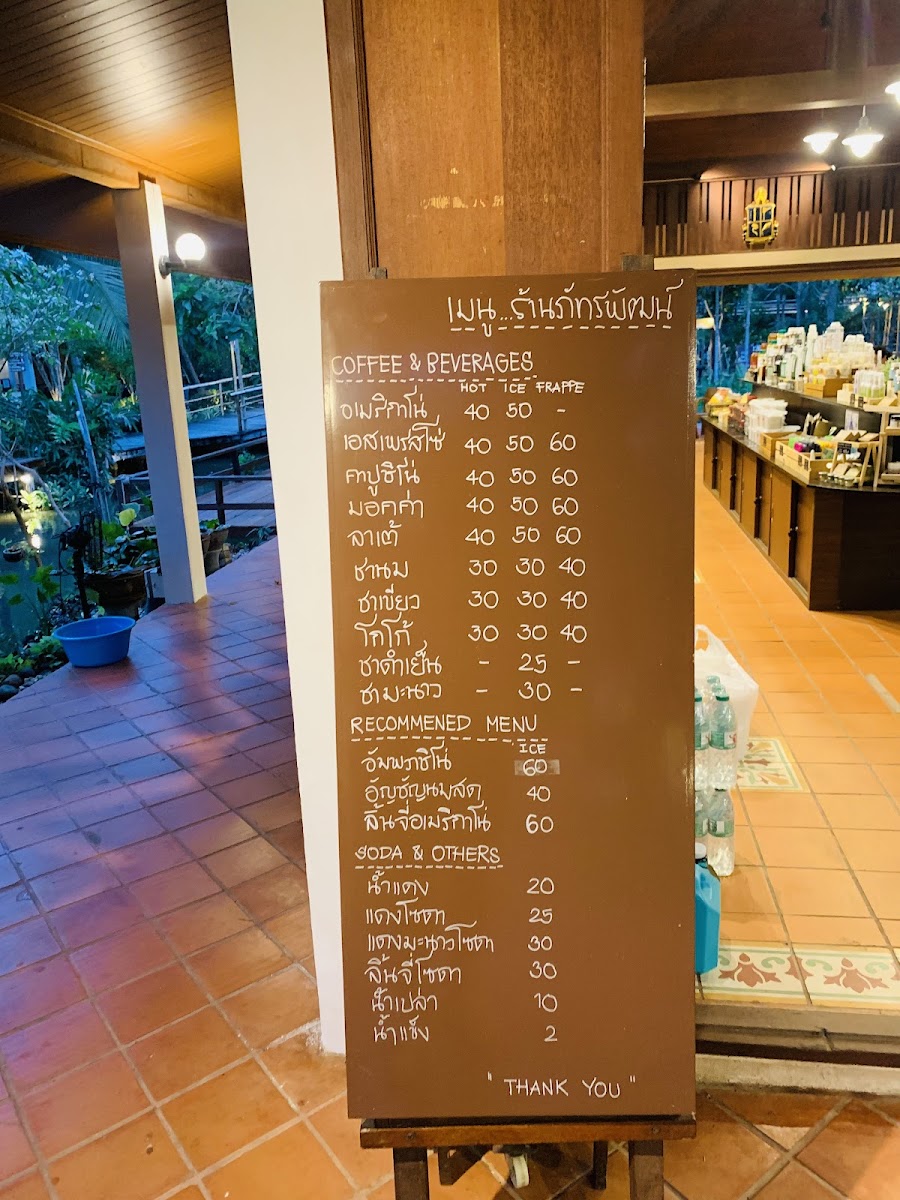 เมนู...ร้านภัทรพัฒน์
COFFEE & BEVERAGES
HOT ICE FRAPPE
อเมริกาโน่ 40 50 -
เอสเพรสโซ่ 40 50 60
คาปูชิโน่ 40 50 60
มอคค่า 40 50 60
ลาเต้ 40 50 60
ชานม 30 30 40
ชาเขียว 30 30 40
โกโก้ 30 30 40
ชาดำเย็น - 25 -
ชามะนาว - 30 -
RECOMMENED MENU
ICE
อัมพวาชิโน่ 60
อัญชัญนมสด 40
ลิ้นจี่อเมริกาโน่ 60
SODA & OTHERS
น้ำแดง 20
แดงโซดา 25
แดงมะนาวโซดา 30
ลิ้นจี่โซดา 30
น้ำเปล่า 10
น้ำแข็ง 2
" THANK YOU "